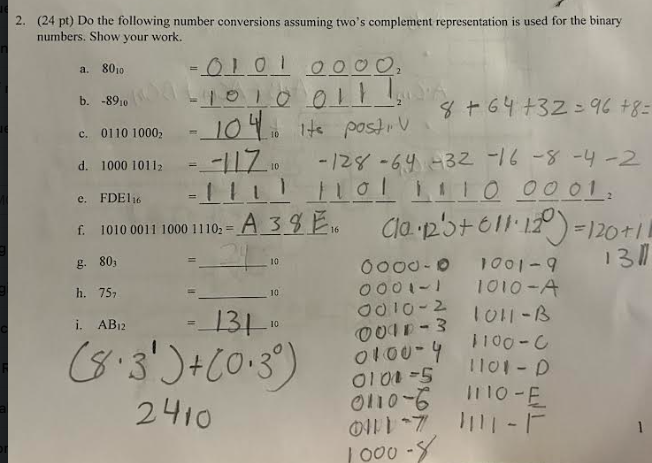 2. (24 pt) Do the following number conversions assuming two's complement representation is used for the binary
numbers. Show your work.
a. 80₁₀ = 0101 0000₂
b. -89₁₀ = 1010 0111₂
8 + 64 +32 = 96 +8=
c. 0110 1000₂ = 104₁₀ Its positiv
d. 1000 1011₂ = -117₁₀ -128 -64 -32 -16 -8 -4 -2
e. FDE1₁₆ = 1111 1101 1110 0001₂
f. 1010 0011 1000 1110₂ = A38E₁₆
(10·12¹)+(11·12⁰)=120+11
131
g. 80₃ = 10
h. 75₇ = 10
i. AB₁₂ = 131₁₀
(8·3¹)+(0·3⁰)
2410
0000-0 1001-9
0001-1 1010-A
0010-2 1011-B
0011-3 1100-C
0100-4 1101-D
0101-5 1110-E
0110-6 1111-F
0111-7
1000-8
1